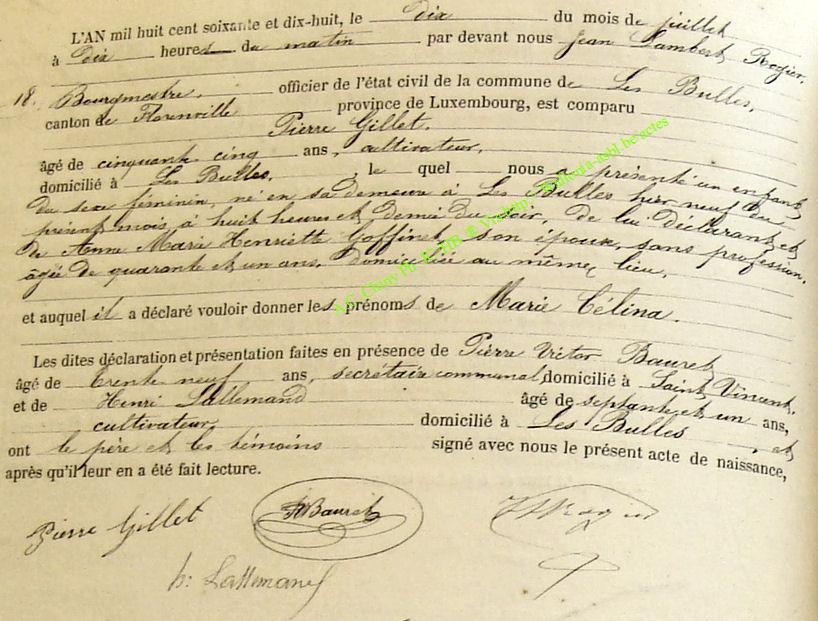 L'AN mil huit cent soixante et dix-huit, le dix du mois de juillet
à dix heures du matin par devant nous Jean Lambert Rogier,
18. Bourgmestre, officier de l'état civil de la commune de Les Bulles,
canton de Florenville province de Luxembourg, est comparu
Pierre Gillet,
âgé de cinquante cinq ans, cultivateur,
domicilié à Les Bulles, le quel nous a présenté un enfant
du sexe feminin, né en sa demeure à Les Bulles hier neuf du
présent mois, à huit heures et demie du soir, de lui déclarant et
de Anne Marie Henriette Goffinet, son épouse, sans profession,
âgée de quarante et un ans, domiciliée au même lieu,
et auquel il a déclaré vouloir donner les prénoms de Marie Célina.
Les dites déclaration et présentation faites en présence de Pierre Victor Bauret
âgé de trente neuf ans, secrétaire communal, domicilié à Saint Vincent,
et de Henri Lallemand âgé de septante et un ans,
cultivateur, domicilié à Les Bulles, et
ont le père et les témoins signé avec nous le présent acte de naissance,
après qu'il leur en a été fait lecture.
Pierre Gillet Bauret
h: Lallemand